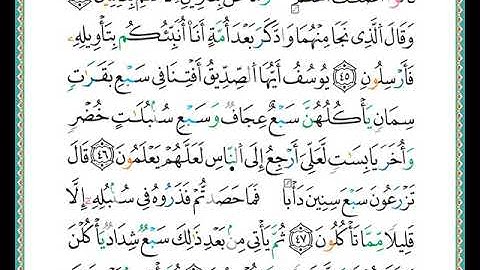 وَقَالَ الَّذِي نَجَا مِنْهُمَا وَادَّكَرَ بَعْدَ أُمَّةٍ أَنَا۠ أُنَبِّئُكُم بِتَأْوِيلِهِۦ
فَأَرْسِلُونِ ﴿٤٥﴾ يُوسُفُ أَيُّهَا الصِّدِّيقُ أَفْتِنَا فِي سَبْعِ بَقَرَٰتٍ
سِمَانٍ يَأْكُلُهُنَّ سَبْعٌ عِجَافٌ وَسَبْعِ سُنۢبُلَٰتٍ خُضْرٍ
وَأُخَرَ يَابِسَٰتٍ لَّعَلِّي أَرْجِعُ إِلَى النَّاسِ لَعَلَّهُمْ يَعْلَمُونَ ﴿٤٦﴾ قَالَ
تَزْرَعُونَ سَبْعَ سِنِينَ دَأَبًا فَمَا حَصَدتُّمْ فَذَرُوهُ فِي سُنۢبُلِهِۦٓ إِلَّا
قَلِيلًا مِّمَّا تَأْكُلُونَ ﴿٤٧﴾ ثُمَّ يَأْتِي مِنۢ بَعْدِ ذَٰلِكَ سَبْعٌ شِدَادٌ يَأْكُلْنَ